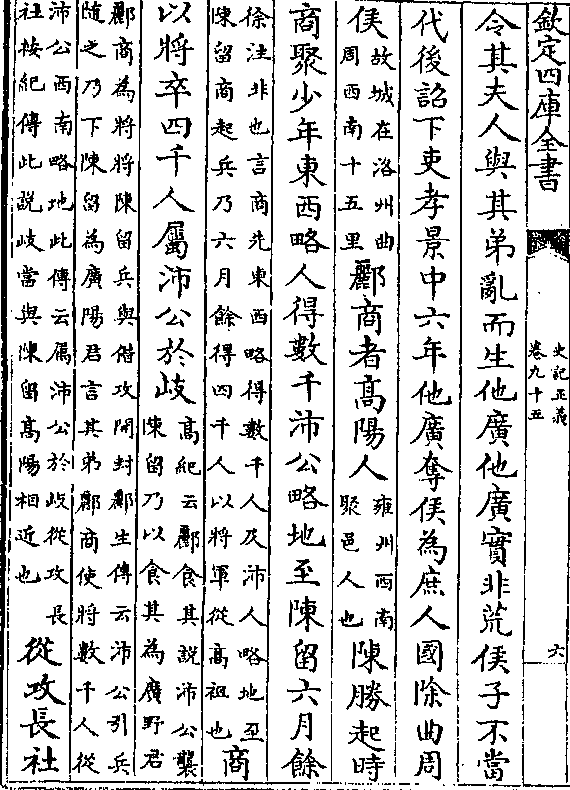 欽定四庫全書
史記正義
卷九十五
六
令其夫人與其弟亂而生他廣他廣實非荒侯子不當
代後詔下吏孝景中六年他廣奪侯為庶人國除曲周
侯故城在洛州曲
周西南十五里酈商者髙陽人雍州西南
聚邑人也陳勝起時
商聚少年東西略人得數千沛公略地至陳留六月餘
徐注非也言商先東西略得數千人及沛人略地至
陳留商起兵乃六月餘得四千人以將軍從髙祖也商
以將卒四千人屬沛公於岐髙紀云酈食其說沛公襲
陳留乃以食其為廣野君
酈商為將將陳留兵與偕攻開封酈生傳云沛公引兵
隨之乃下陳留為廣陽君言其弟酈商使將數千人從
沛公西南略地此傳云屬沛公於岐從攻長
社按紀傳此説岐當與陳留髙陽相近也從攻長社